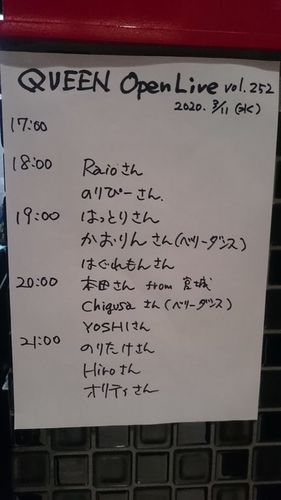 QUEEN Open Live vol.252
2020. 3/11 (水)
17:00
18:00 Raioさん
のりぴーさん.
19:00 はっとりさん
かおりんさん(ベリーダンス)
はぐれもんさん
20:00 本田さん from 宮城
Chigusaさん(ベリーダンス)
YOSHIさん
21:00 のりたけさん
Hiroさん
オリティさん